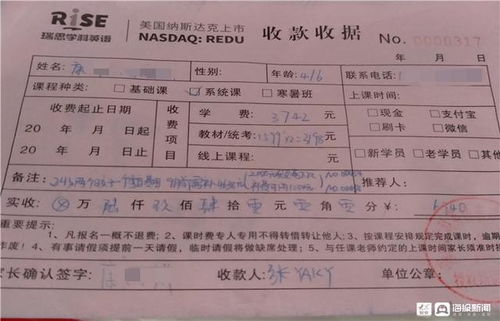 RISE
瑞思学科英语
美国纳斯达克上市
NASDAQ: REDU
收款收据
No. 0000317
年 月 日
姓名: 康 性别: 年龄: 4/6 联系电话:
课程种类: □基础课 ☑系统课 □寒暑班 上课时间:
收费起止日期 收费项目 学 费 3742 元 □现金 □支付宝
20 年 月 日起 教材/统考: 元 □刷卡 □微信
20 年 月 日止 线上课程: 元 □新学员 □老学员 □其他
备注: 推荐人:
实收: ⊗万 陆仟 玖佰 肆拾 零元 零角 零分 ¥: 6940
重要提示:
1、凡报名一概不退费; 2、课时费专人专用不得转借转让他人; 3、按课程安排规定完成课时,逾期
作废! 4、有事请假须提前一天请假,临时请假将做缺席处理; 5、与任课老师约定的上课时间家长须准时
家长确认签字: 康 收款人: 张YAKY 单位公章:
海报新闻